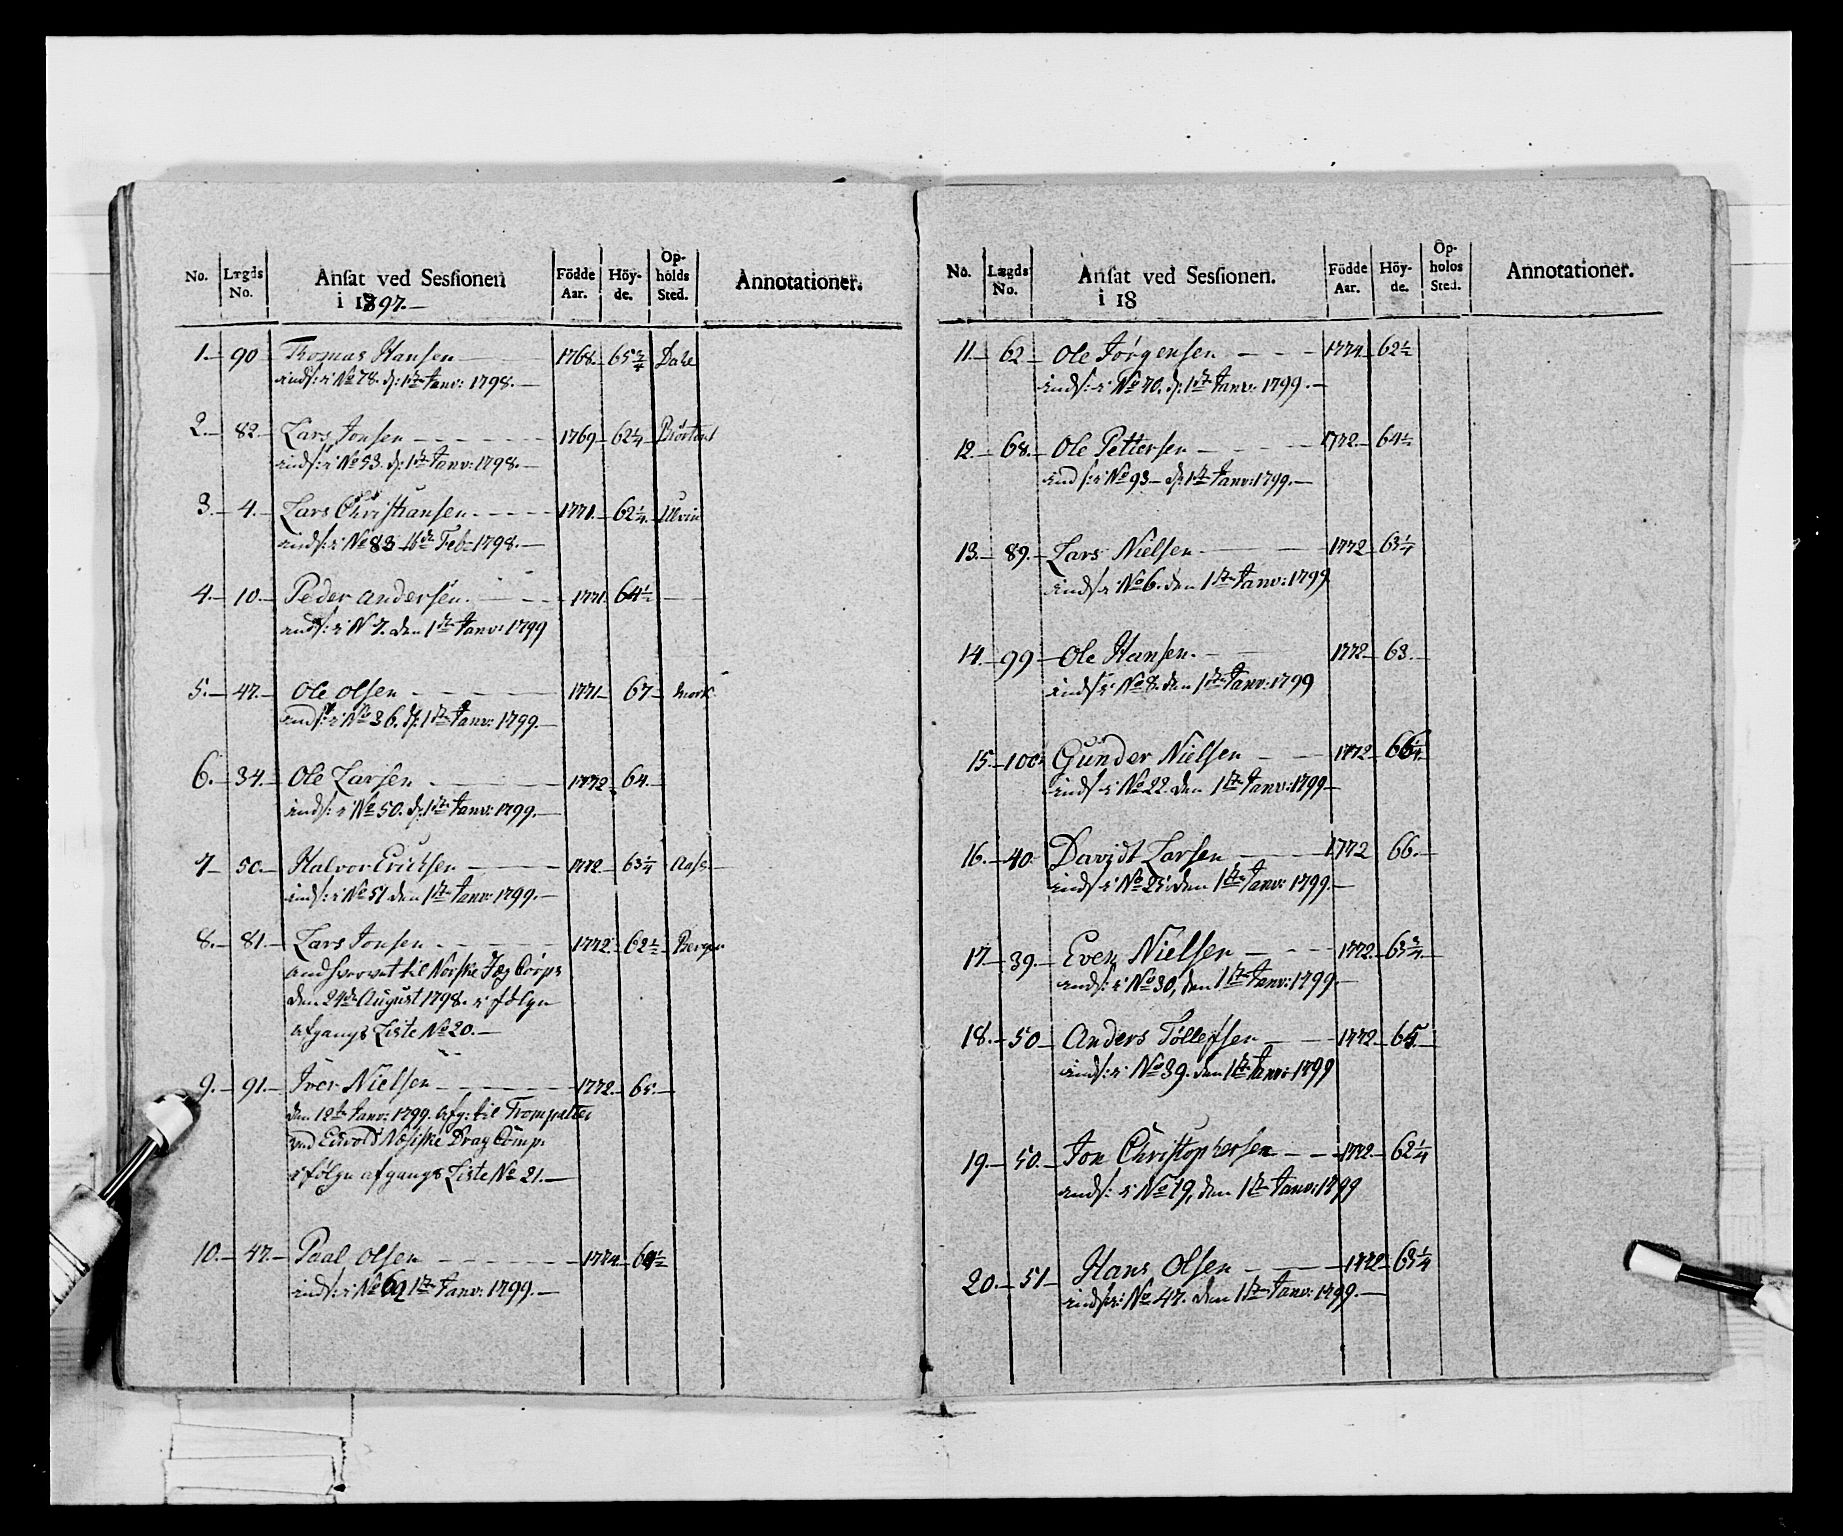 No. Lægds No. Ansat ved Sessionen i 1797.— Födde Aar. Höyde. Opholds Sted. Annotationer.
1.— 90 Thomas Hansen — 1768. 65 3/4 Dahl
inds: i No 78. d: 1te Janv: 1798.—
2.— 82 Lars Jonsen — 1769 62 1/4
inds: i No 53. d: 1te Janv: 1798.—
3.— 4.— Lars Christiansen — 1771. 62 1/4 Ulvin
inds: i No 83 Feb 1798.—
4.— 10.— Peder Andersen. — 1771. 64 1/2 —
inds: i N 7. den 1te Janv: 1799
5.— 47.— Ole Olsen — 1771 67 mork
inds: i No 36. d. 1te Janv: 1799.—
6.— 34.— Ole Larsen — 1772 64.—
inds: i No 50. d. 1te Janv: 1799.—
7 — 50.— Halvor Ericksen — 1772 63 1/4 Aas
inds: i No 51 den 1te Janv: 1799.—
8.— 81.— Lars Jonsen — 1772 62 1/2 Berger
til Norske Jæg Corps
den 24de August 1798. i følge
afgangs Liste No 20.—
9.— 91.— Iver Nielsen — 1772. 65.—
den 12te Janv: 1799. afg: til Trompetter
ved Drag Comp:
i følge afgangs Liste No 21.—
10.— 47.— Paal Olsen — 1774 64 1/2
inds: i No 62 1te Janv: 1799.—
No. Lægds No. Ansat ved Sessionen. i 18 Födde Aar. Höyde. Opholds Sted. Annotationer.
11.— 62 — Ole Jørgensen — 1774 62 1/2
inds: i No 70. d. 1te Janv: 1799.—
12.— 68.— Ole Pettersen — 1772.— 64 1/2
inds: i No 93 — d. 1te Janv: 1799.—
13.— 89.— Lars Nielsen — 1772 63 1/4
inds i No 6. den 1te Janv: 1799
14.— 99 — Ole Hansen. — 1772 63.—
inds i No 8. den 1te Janv: 1799
15.— 100 Gunder Nielsen — 1772 66 1/4
inds i No 22. den 1te Janv: 1799—
16.— 40 Davidt Larsen — 1772 66.—
inds i No 25. den 1te Janv: 1799.—
17.— 39.— Even Nielsen — 1772. 63 3/4
inds: i No 30, den 1te Janv: 1799.—
18.— 50 — Anders Tøllefsen — 1772 65
inds: i No 39. den 1te Janv: 1799
19.— 50.— Jon Christophersen — 1772. 62 1/4
inds: i No 19, den 1te Janv: 1799
20.— 51 — Hans Olsen — 1772 63 1/4
inds: i No 47. den 1te Janv: 1799.—